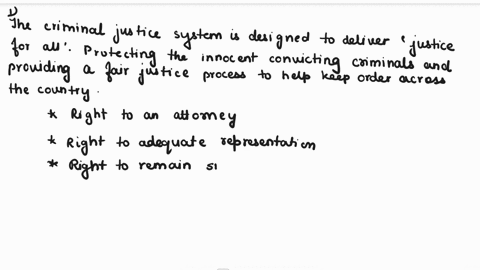 1)
The criminal justice system is designed to deliver 'justice
for all'. Protecting the innocent convicting criminals and
providing a fair justice process to help keep order across
the country.
* Right to an attorney
* Right to adequate representation
* Right to remain si